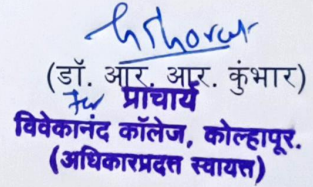 (डॉ. आर. आर. कुंभार)
For प्राचार्य
विवेकानंद कॉलेज, कोल्हापूर.
(अधिकारप्रदत्त स्वायत्त)